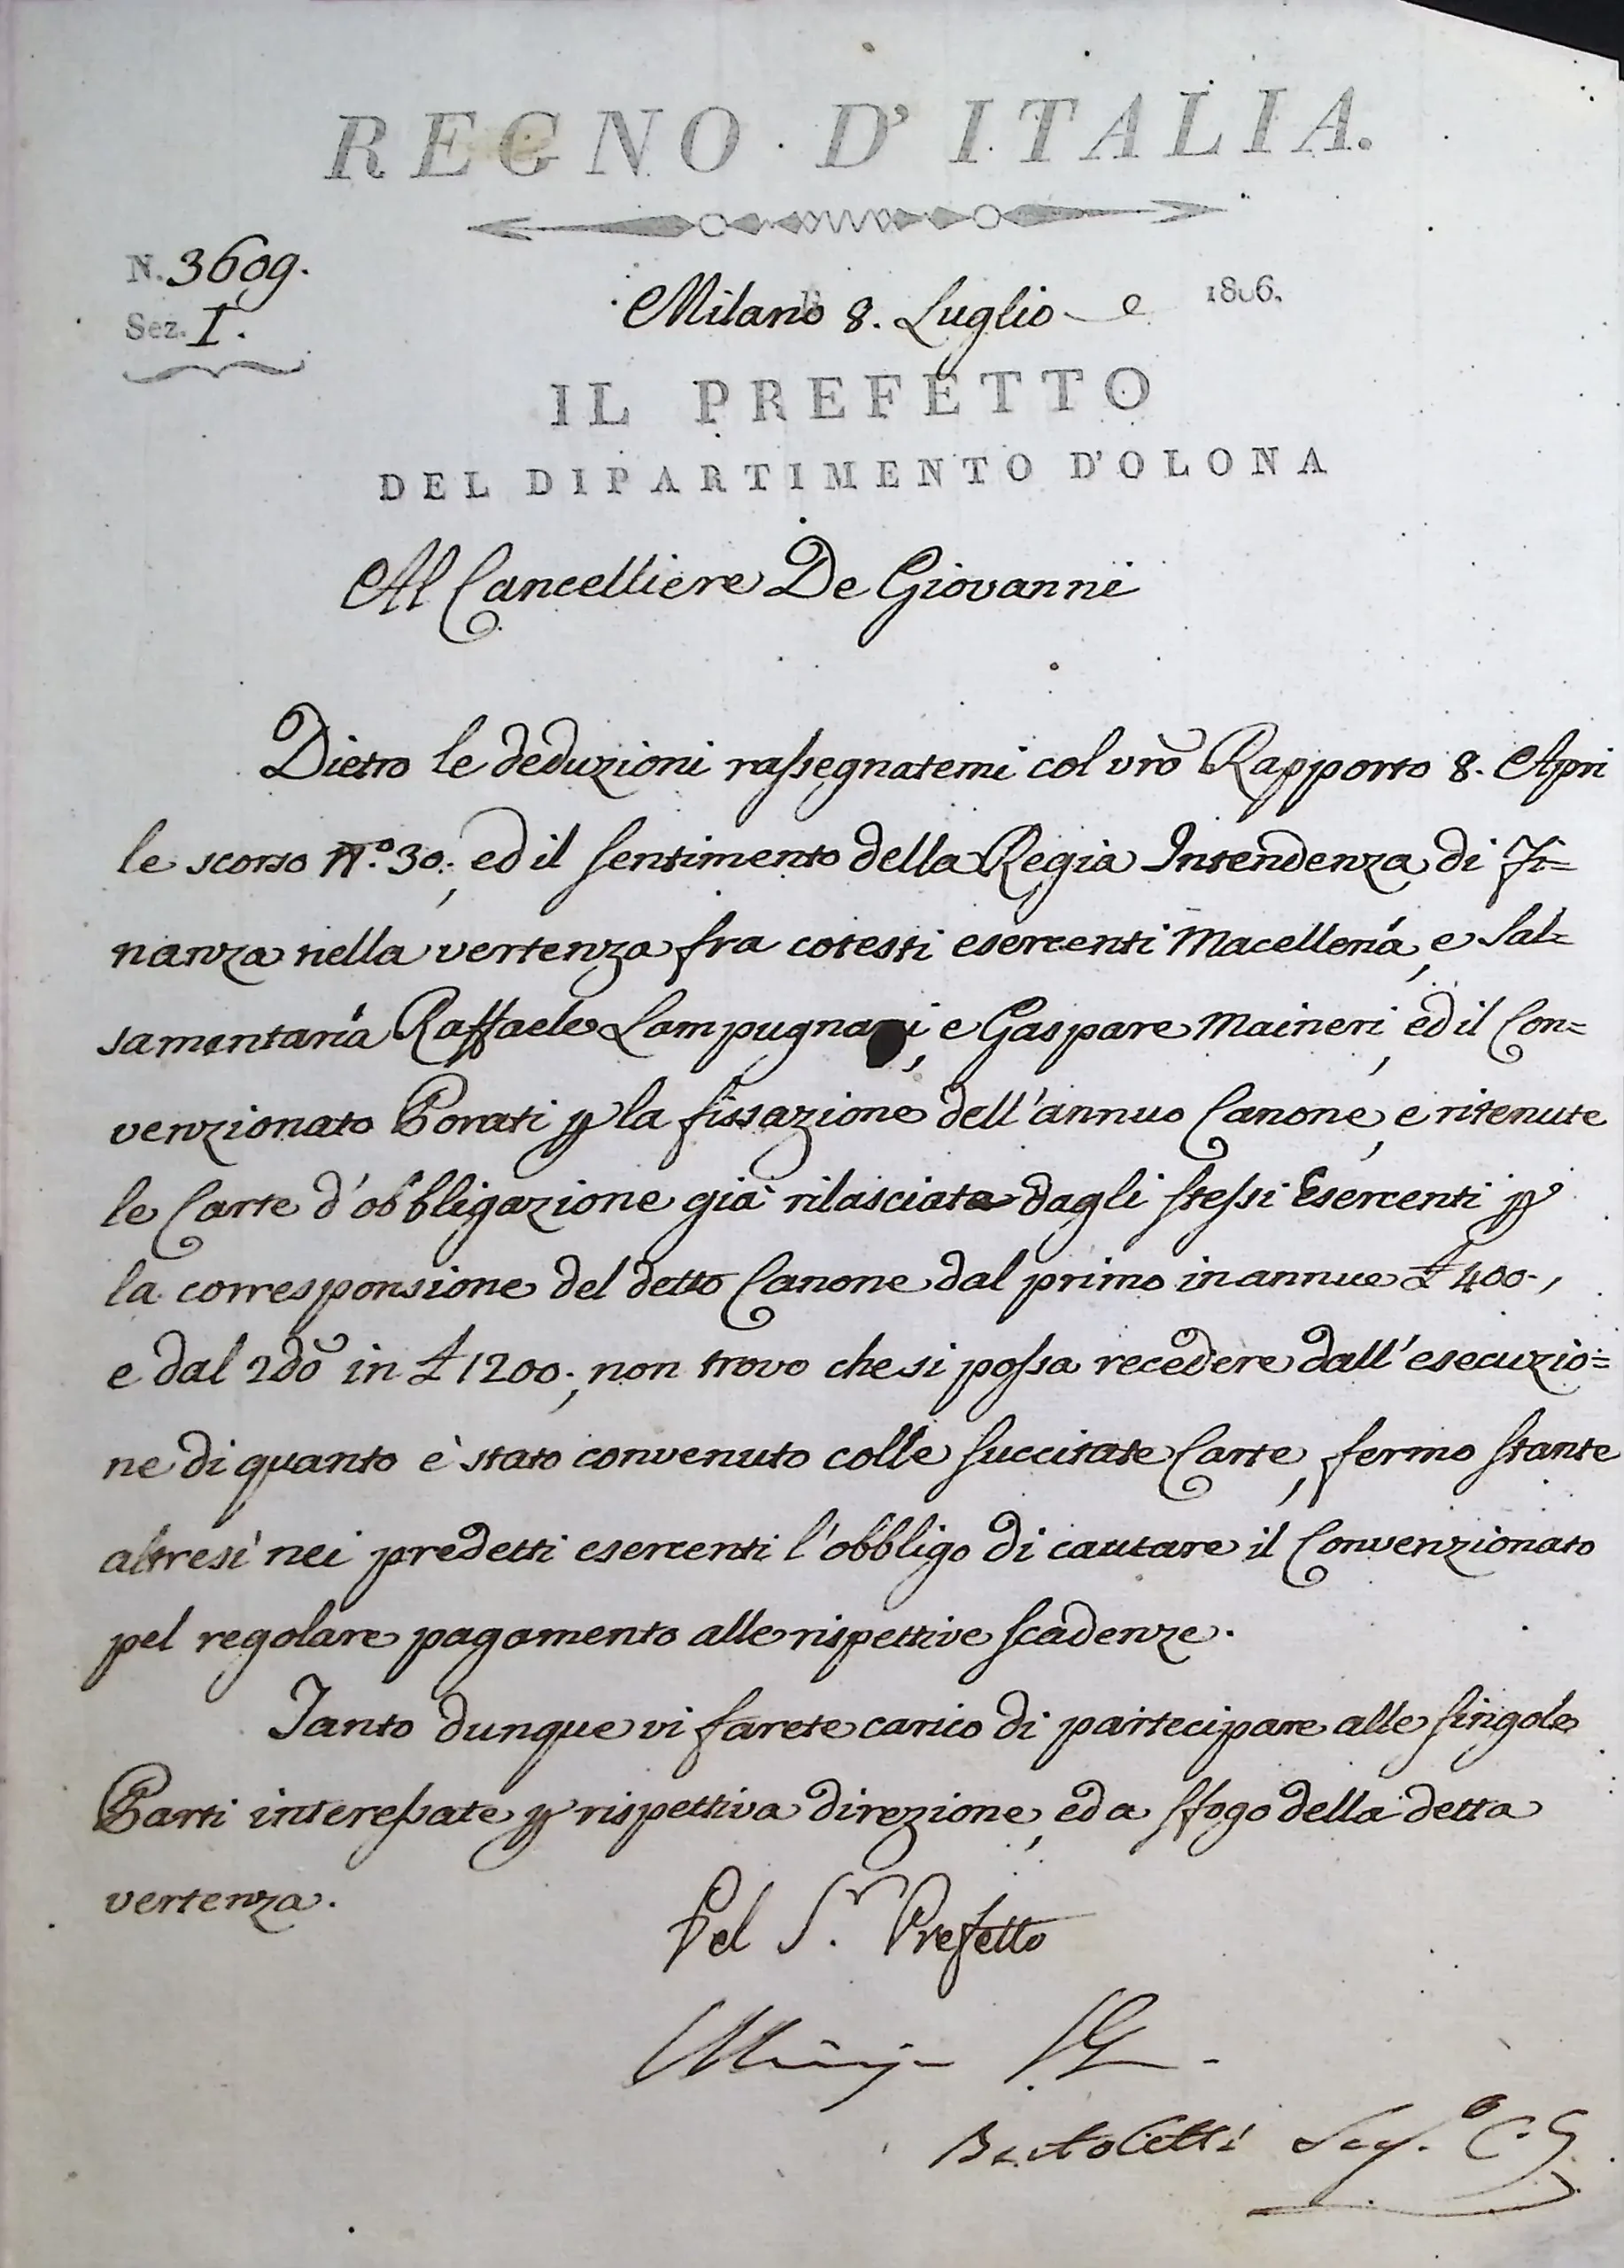 REGNO D'ITALIA.
N. 3609.
Milano 8. Luglio 1806.
Sez. I.
IL PREFETTO
DEL DIPARTIMENTO D'OLONA
Al Cancelliere De Giovanni
Dietro le deduzioni rassegnatemi col vrõ Rapporto 8. Apri
le scorso N.º 30., ed il sentimento della Regia Intendenza di Fi=
nanza nella vertenza fra cotesti esercenti Macelleria, e Sal=
samentaria Raffaele Lampugnani, e Gaspare Maineri, ed il Con=
venzionato Porati p la fissazione dell'annuo Canone, e ritenute
le Carte d'obbligazione già rilasciate dagli stessi Esercenti p
la corresponsione del detto Canone dal primo in annue £ 400.,
e dal 2dõ in £ 1200., non trovo che si possa recedere dall'esecuzio=
ne di quanto è stato convenuto colle succitate Carte, fermo stante
altresì nei predetti esercenti l'obbligo di cautare il Convenzionato
pel regolare pagamento alle rispettive scadenze.
Tanto dunque vi farete carico di partecipare alle singole
Parti interessate p rispettiva direzione, ed a sfogo della detta
vertenza.
Pel S.r Prefetto
Bertoletti